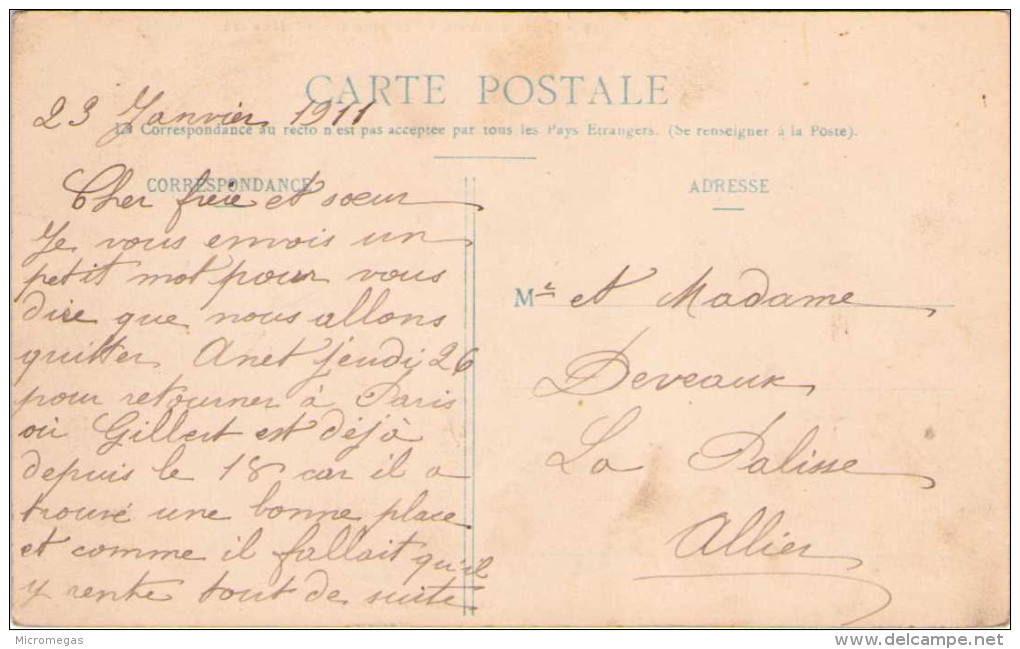 CARTE POSTALE
23 Janvier 1911
La Correspondance au recto n'est pas acceptée par tous les Pays Etrangers. (Se renseigner à la Poste).
CORRESPONDANCE
Cher frère et sœur
Je vous envois un
petit mot pour vous
dire que nous allons
quitter Anet jeudi 26
pour retourner à Paris
où Gilbert est déjà
depuis le 18 car il a
trouvé une bonne place
et comme il fallait qu'il
y rentre tout de suite
ADRESSE
Mr et Madame
Deveaux
La Palisse
Allier
Micromegas
www.delcampe.net